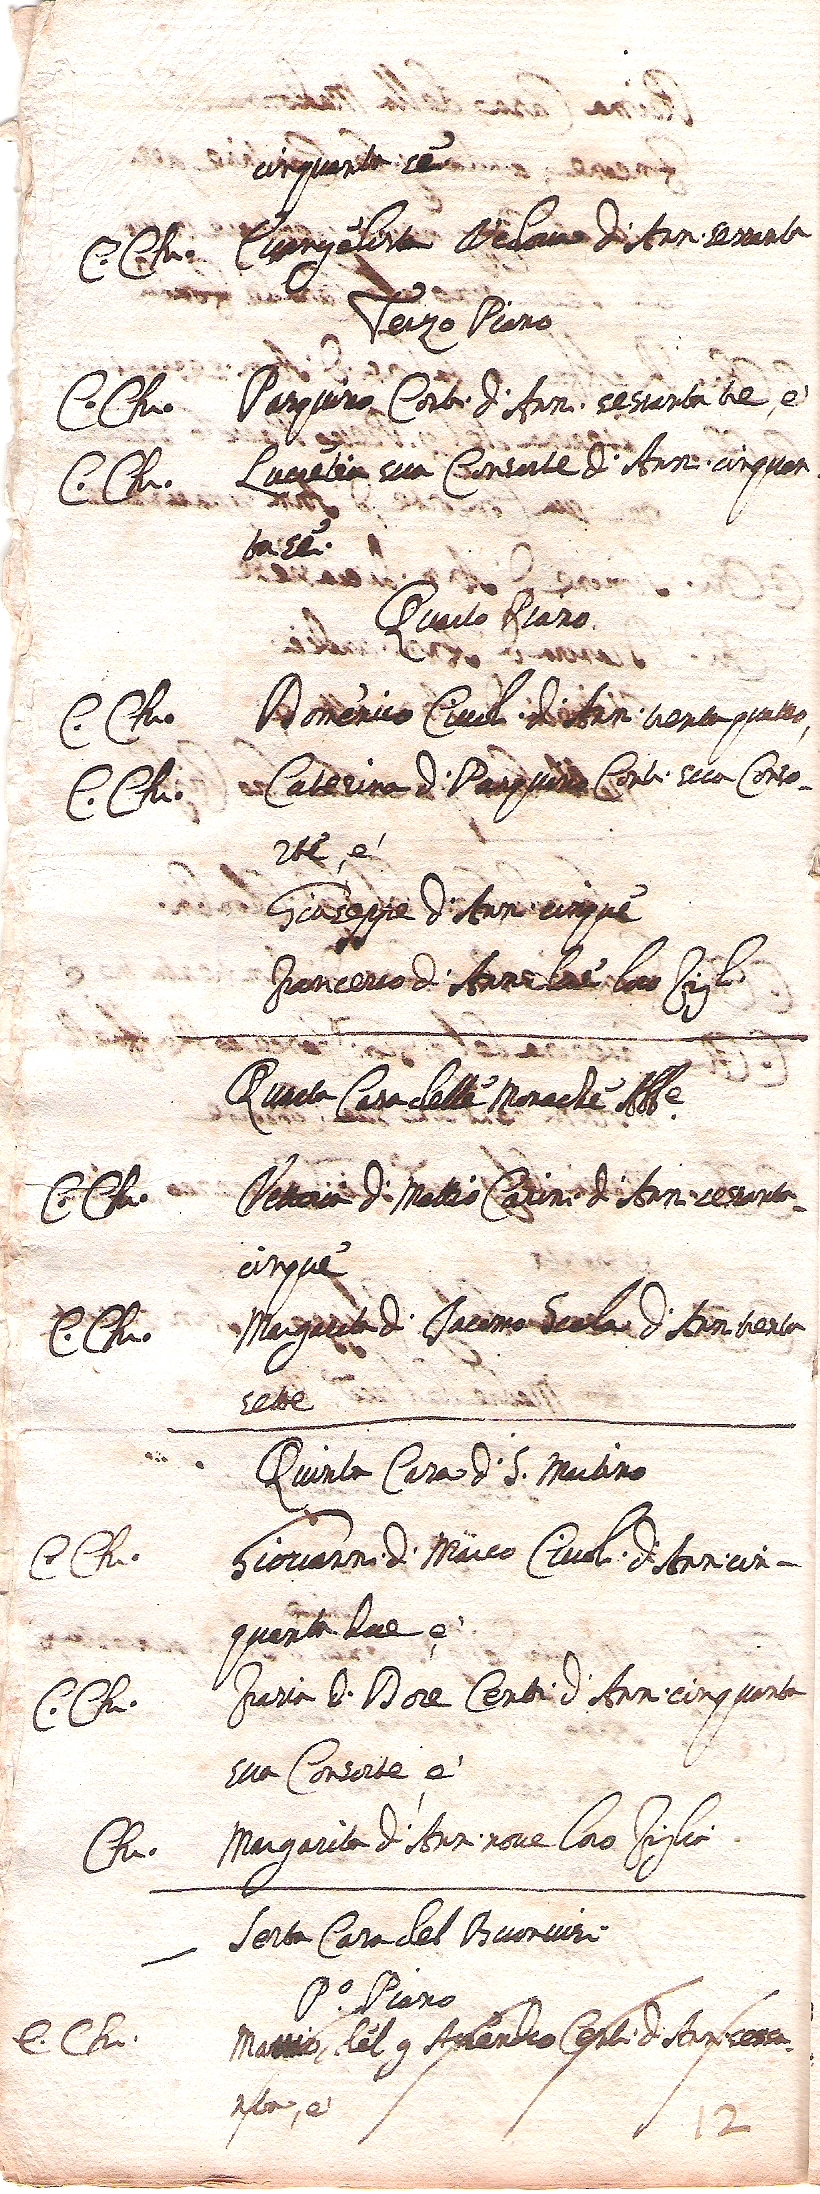 cinquanta sei
C. Ch. Evangelista Vedova d'Ann. sessanta
Terzo Piano
C. Ch. Pasquino Conti d'Ann. sessanta tre, e
C. Ch. Lucretia sua Consorte d'Ann. cinquan
ta sei.
Quarto Piano
C. Ch. Domenico Civoli d'Ann. trenta quattro,
C. Ch. Caterina d. Pasquino Conti sua Conso-
rte, e
Giuseppe d'Ann. cinque
Francesco d'Ann. due loro Figli
Quarta Casa delle Monache
C. Ch. Vettoria di Mattio Carini d'Ann. sessanta-
cinque
C. Ch. Margarita di Jacomo Scala d'Ann. trenta
sette
Quinta Casa di S. Martino
C. Ch. Giovanni di Marco Civoli d'Ann. cin-
quanta due e
C. Ch. di Conti d'Ann. cinquanta
sua Consorte, e
Ch. Margarita d'Ann. nove loro Figlia.
Sesta Casa del Buonvisi
P.º Piano
C. Ch. Matteo del q Conti d'Ann. sessa-
nta, e
12